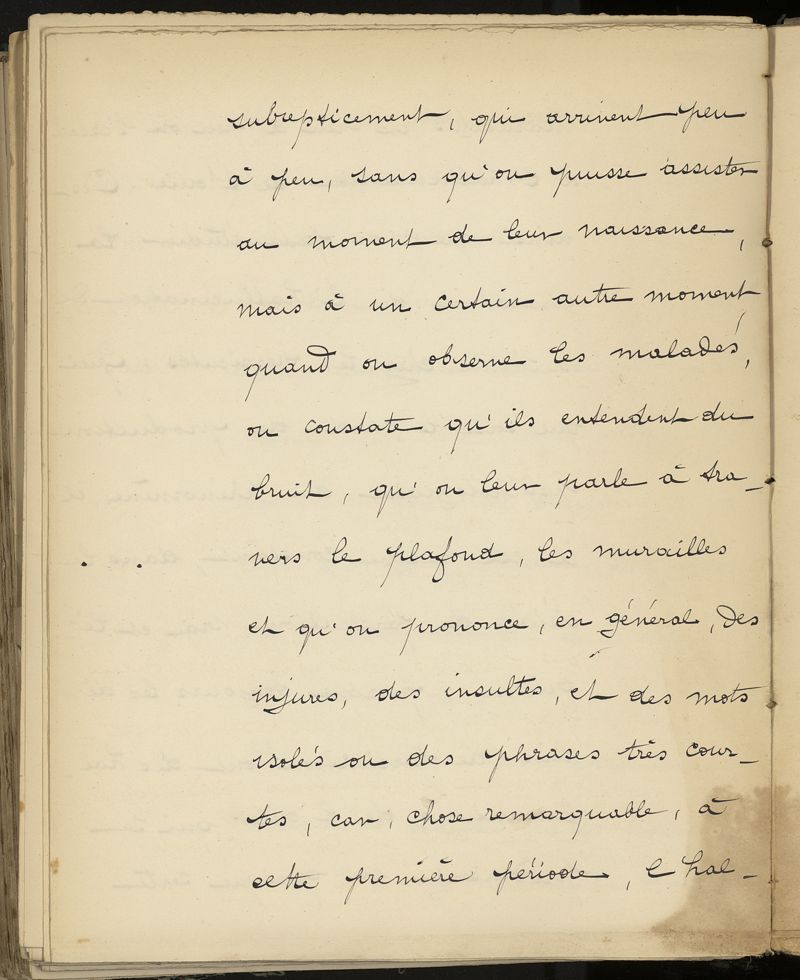 subrepticement, qui arrivent peu
à peu, sans qu'on puisse assister
au moment de leur naissance,
mais à un certain autre moment,
quand on observe les malades,
on constate qu'ils entendent du
bruit, qu'on leur parle à tra_
vers le plafond, les murailles
et qu'on prononce, en général, des
injures, des insultes, et des mots
isolés ou des phrases très cour_
tes, car, chose remarquable, à
cette première période, l'hal_